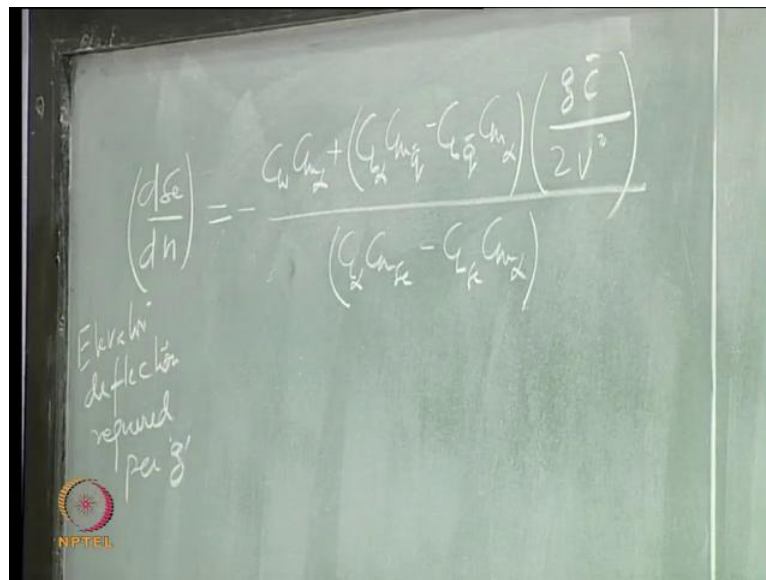 (dδe/dn) = - (C_W C_mα + (C_Lα C_mq̄ - C_Lq̄ C_mα)(g c̄ / 2V²)) / (C_Lα C_mδe - C_Lδe C_mα)
Elevator
deflection
required
per 'g'
NPTEL